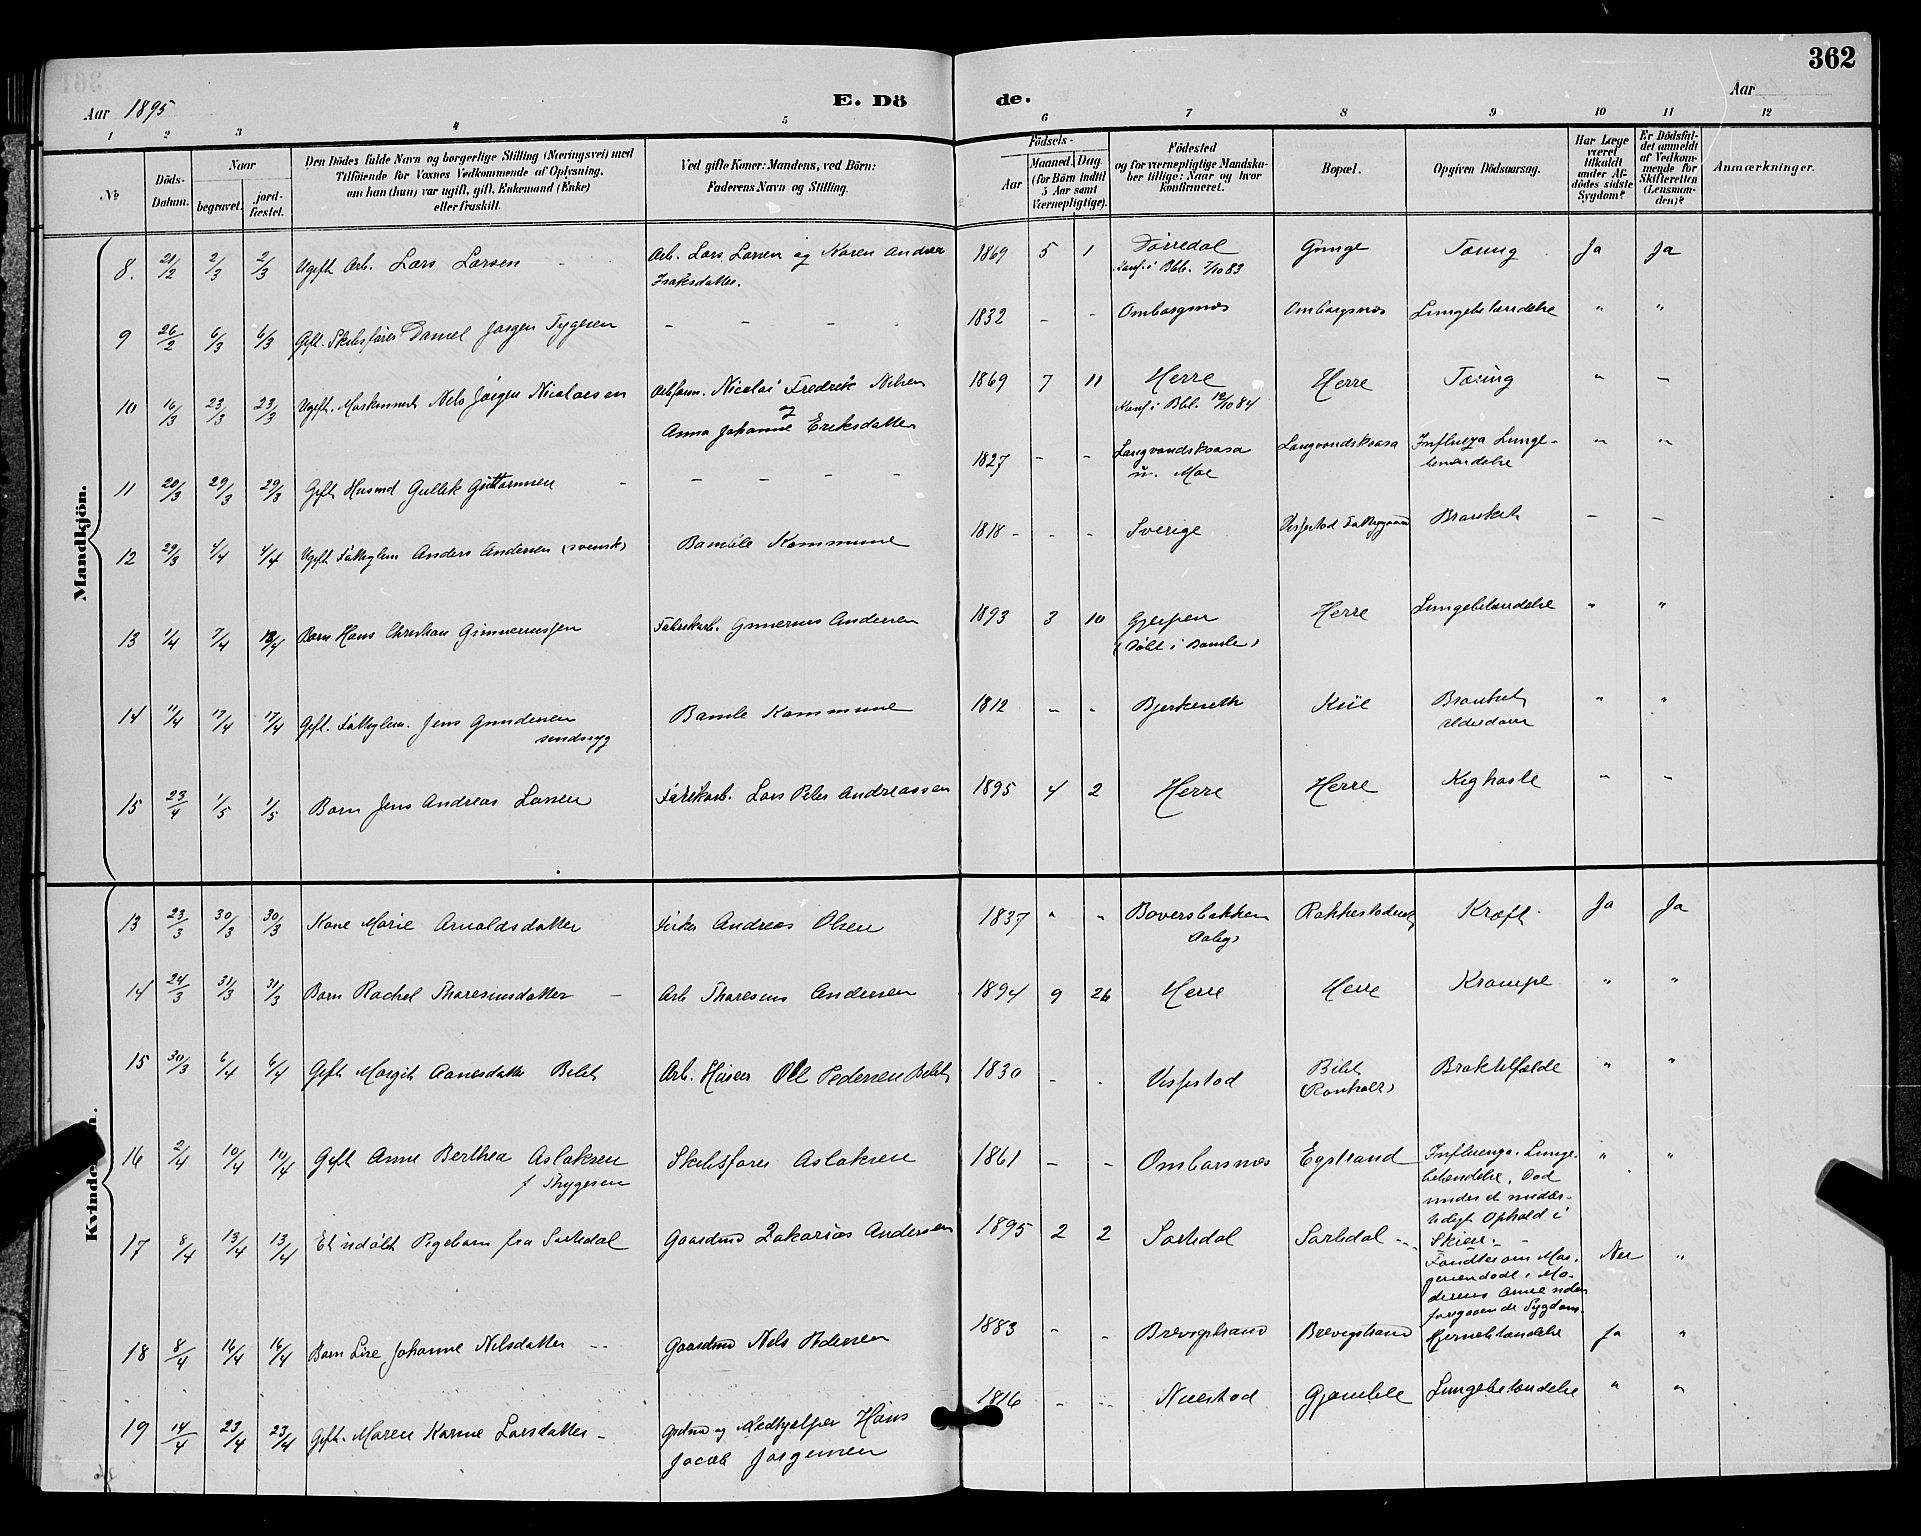 362
Aar 1895
E. Dö
de.
Aar
1 2 3 4 5 6 7 8 9 10 11 12
No
Döds-
Datum.
Naar
begravet.
jord-
fæstet.
Den Dödes fulde Navn og borgerlige Stilling (Næringsvei) med
Tilföiende for Voxnes Vedkommende af Oplysning,
om han (hun) var ugift, gift, Enkemand (Enke)
eller fraskilt.
Ved gifte Koner: Mandens, ved Börn:
Faderens Navn og Stilling.
Födsels-
Aar
Maaned. Dag
(for Börn indtil
5 Aar samt
Værnepligtige).
Födested
og for værnepligtige Mandska-
ber tillige: Naar og hvor
konfirmeret.
Bopæl.
Opgiven Dödsaarsag.
Har Læge
været
tilkaldt
under Af-
dödes sidste
Sygdom?
Er Dödsfal-
det anmeldt
af Vedkom-
mende for
Skifteretten
(Lensman-
den)?
Anmærkninger.
Mandkjön.
8. 21/2 2/3 2/3 Ugift Arb. Lars Larsen - Arb. Lars Larsen og Karen Andrea 1869 5 1 Tæring Ja Ja
Isaksdatter. Konf. i Bbl. 7/10 83
9 26/2 6/3 6/3 Gift. Skibsfører Daniel Jørgen Tygesen - - - - 1832 - - Omborgsnæs Omborgsnæs Lungebetændelse " "
10 16/3 23/3 23/3 Ugift. Nils Jørgen Nicolaisen Nicolai Fredrik Nilsen 1869 7 11 Herre Herre Tæring " "
og Konf. i Bbl. 12/10 84
Anna Johanne Eriksdatter
11 20/3 29/3 29/3 Gift Husmd Gullik Guttormsen - - - - 1827 - - Langvandskaasa Langvandskaasa Influenza Lunge-
u. Moe betændelse
12 29/3 4/4 4/4 Ugift Fattiglem Anders Andersen (svensk) Bamble Kommune 1818 - - - Sverige Vispestad
13 1/4 7/4 13/4 Barn Hans Christian Gunneriussen Fabrikarb. Gunerius Andersen 1893 3 10 Gjerpen Herre Lungebetændelse " "
(døbt i Bamle)
14 11/4 17/4 17/4 Gift. Fattiglem. Jens Gundersen Bamle Kommune 1812 - - " "
sindssyg Alderdom
15 23/4 1/5 1/5 Barn Jens Andreas Larsen Fabrikarb. Lars Peter Andreassen 1895 4 2 Herre Herre Kighoste " "
13 23/3 30/3 30/3 Kone Marie Arnoldsdatter Andreas Olsen 1837 " " Boversbakken Kræft. Ja Ja
14 24/3 31/3 31/3 Barn Rachel Tharesiusdatter - Arb Tharesius Andersen 1894 9 26 Herre Herre Krampe " "
15 30/3 6/4 6/4 Gift Margit Aanesdatter Bilet Arb. Ole Pedersen Bilet 1830 - - Vispestad Bilet " "
(Rønholt)
16 2/4 10/4 10/4 Gift Anne Berthea Aslaksen Skibsfører Aslaksen 1861 - - Ombarsnæs Egstrand Influenza. Lunge- " "
f Thygesen betændelse, Død
under et midler-
tidigt Ophold i
Skien.
17 8/4 13/4 13/4 Et udøbt Pigebarn fra Sortedal Gaardmd Zakarias Andersen 1895 2 2 Sortedal Sortedal - Fandtes om Mor- Nei "
genen død i Mo-
derens Arme uden
foregaaende Sygdom.
18 8/4 16/4 16/4 Barn Lise Johanne Nilsdatter - Gaardmd Nils Pedersen 1883 " " Brevigstrand Brevigstrand Hjernebetændelse Ja "
19 14/4 23/4 23/4 Gift. Maren Karine Larsdatter - og Medhjælper Hans 1816 - - Gjømble Lungebetændelse " "
Jacob Jørgensen